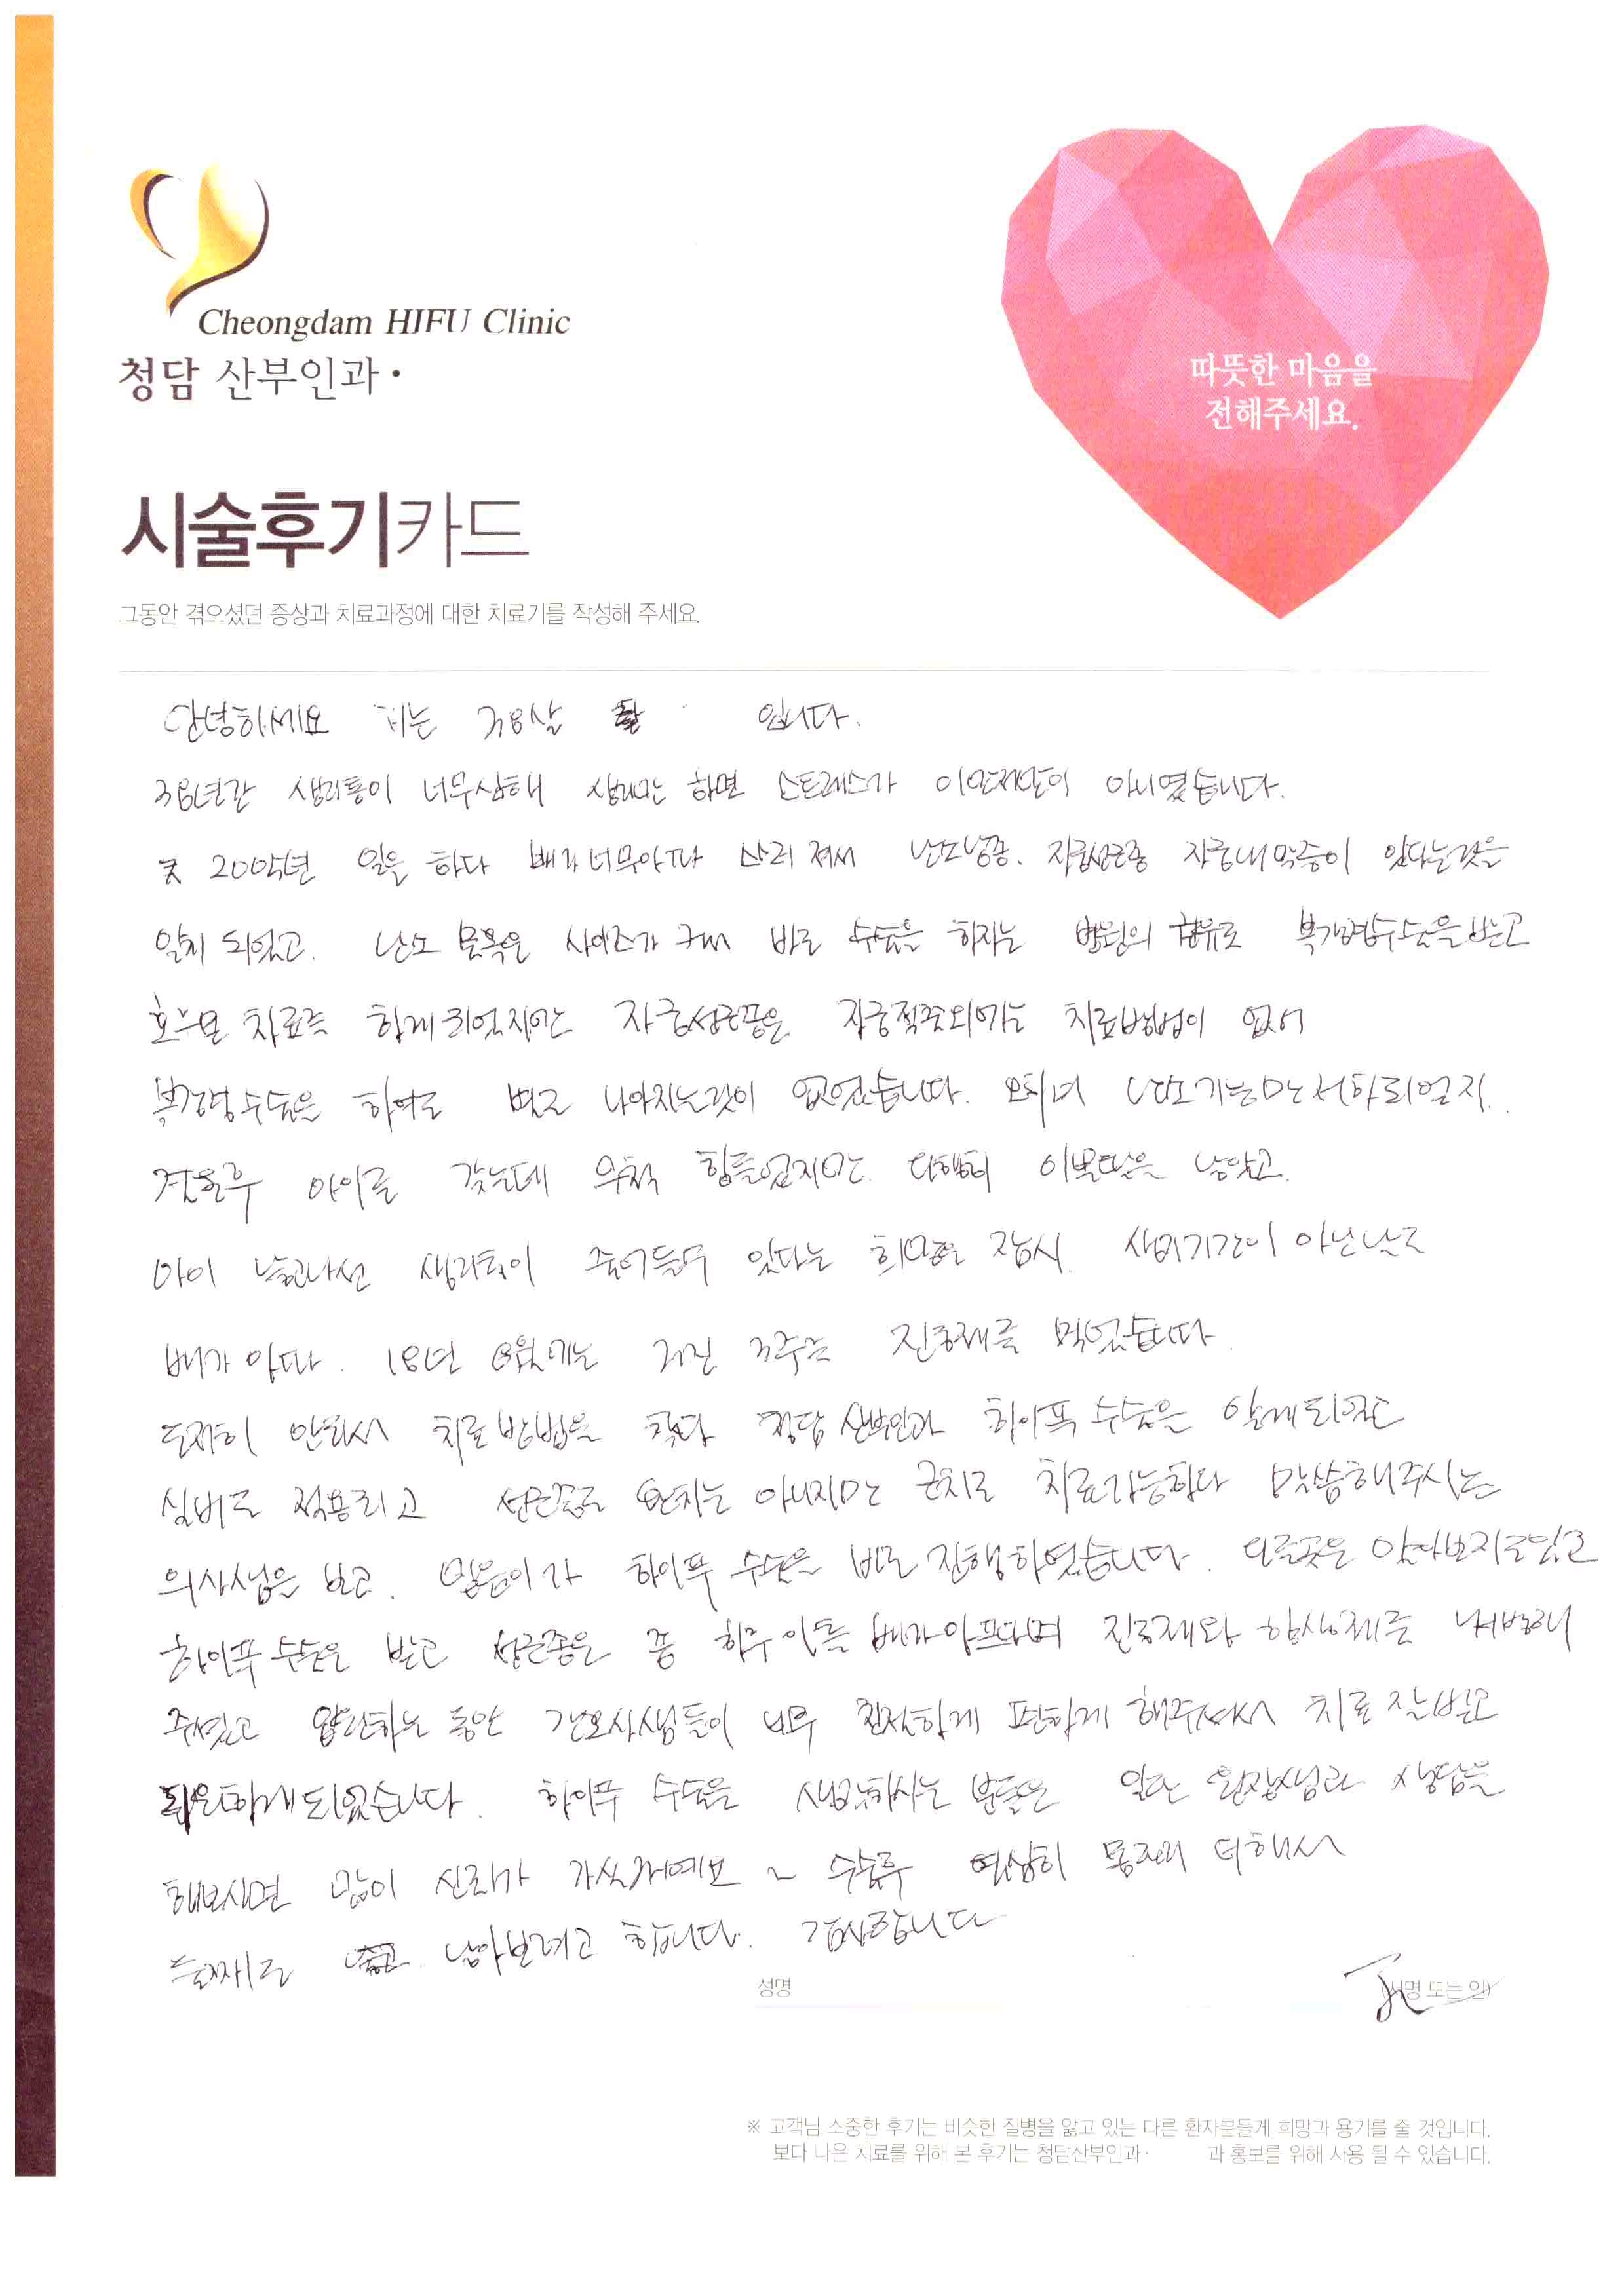 Cheongdam HIFU Clinic
청담 산부인과·
따뜻한 마음을
전해주세요.
시술후기카드
그동안 겪으셨던 증상과 치료과정에 대한 치료기를 작성해 주세요.
안녕하세요 저는 38살 입니다.
38년간 생리통이 너무심해 생리만 하면 스트레스가 이만저만이 아니였습니다.
2005년 일을 하다 배가너무아파 난소낭종. 자궁선근종 자궁내막증이 있다는것을
알게 되었고. 난소 물혹은 사이즈가 커서 바로 수술을 하자는 병원의 권유로 복강경수술을받고
호르몬 치료도 함께 되었지만 자궁선근종은 자궁적출외에는 치료방법이 없어
복강경수술을 하여도 별로 나아지는것이 없었습니다. 오히려 난소기능만 저하되었지.
결혼후 아이를 갖는데 무척 힘들었지만 다행히 이쁜딸을 낳았고.
아이 낳고나선 생리통이 줄어들수 있다는 희망은 잠시 생리기간이 아닌날도
배가 아파. 18년 8월에는 거진 3주를 진통제를 먹었습니다.
도저히 안되서 치료 방법을 찾다 청담 산부인과 하이푸 수술을 알게되었고
실비도 적용되고 선근종도 완치는 아니지만 근치로 치료가능하다 말씀해주시는
의사샘을 보고. 믿음이 가 하이푸 수술을 바로 진행하였습니다. 다른곳은 알아보지도않고
하이푸 수술을 받고 선근종은 좀 하루 이틀 배가아프다며 진통제와 항상제를 처방해
주셨고 입원하는 동안 간호사샘들이 너무 친절하게 편하게 해주셔서 치료 잘받고
퇴원하게되었습니다. 하이푸 수술을 생각하시는 분들은 일단 원장샘과 상담을
해보시면 많이 신뢰가 가실거예요 ~ 수술후 열심히 몸관리 더해서
둘째도 낳아보려고 합니다. 감사합니다
성명
(서명 또는 인)
※ 고객님 소중한 후기는 비슷한 질병을 앓고 있는 다른 환자분들게 희망과 용기를 줄 것입니다.
보다 나은 치료를 위해 본 후기는 청담산부인과· 과 홍보를 위해 사용 될 수 있습니다.